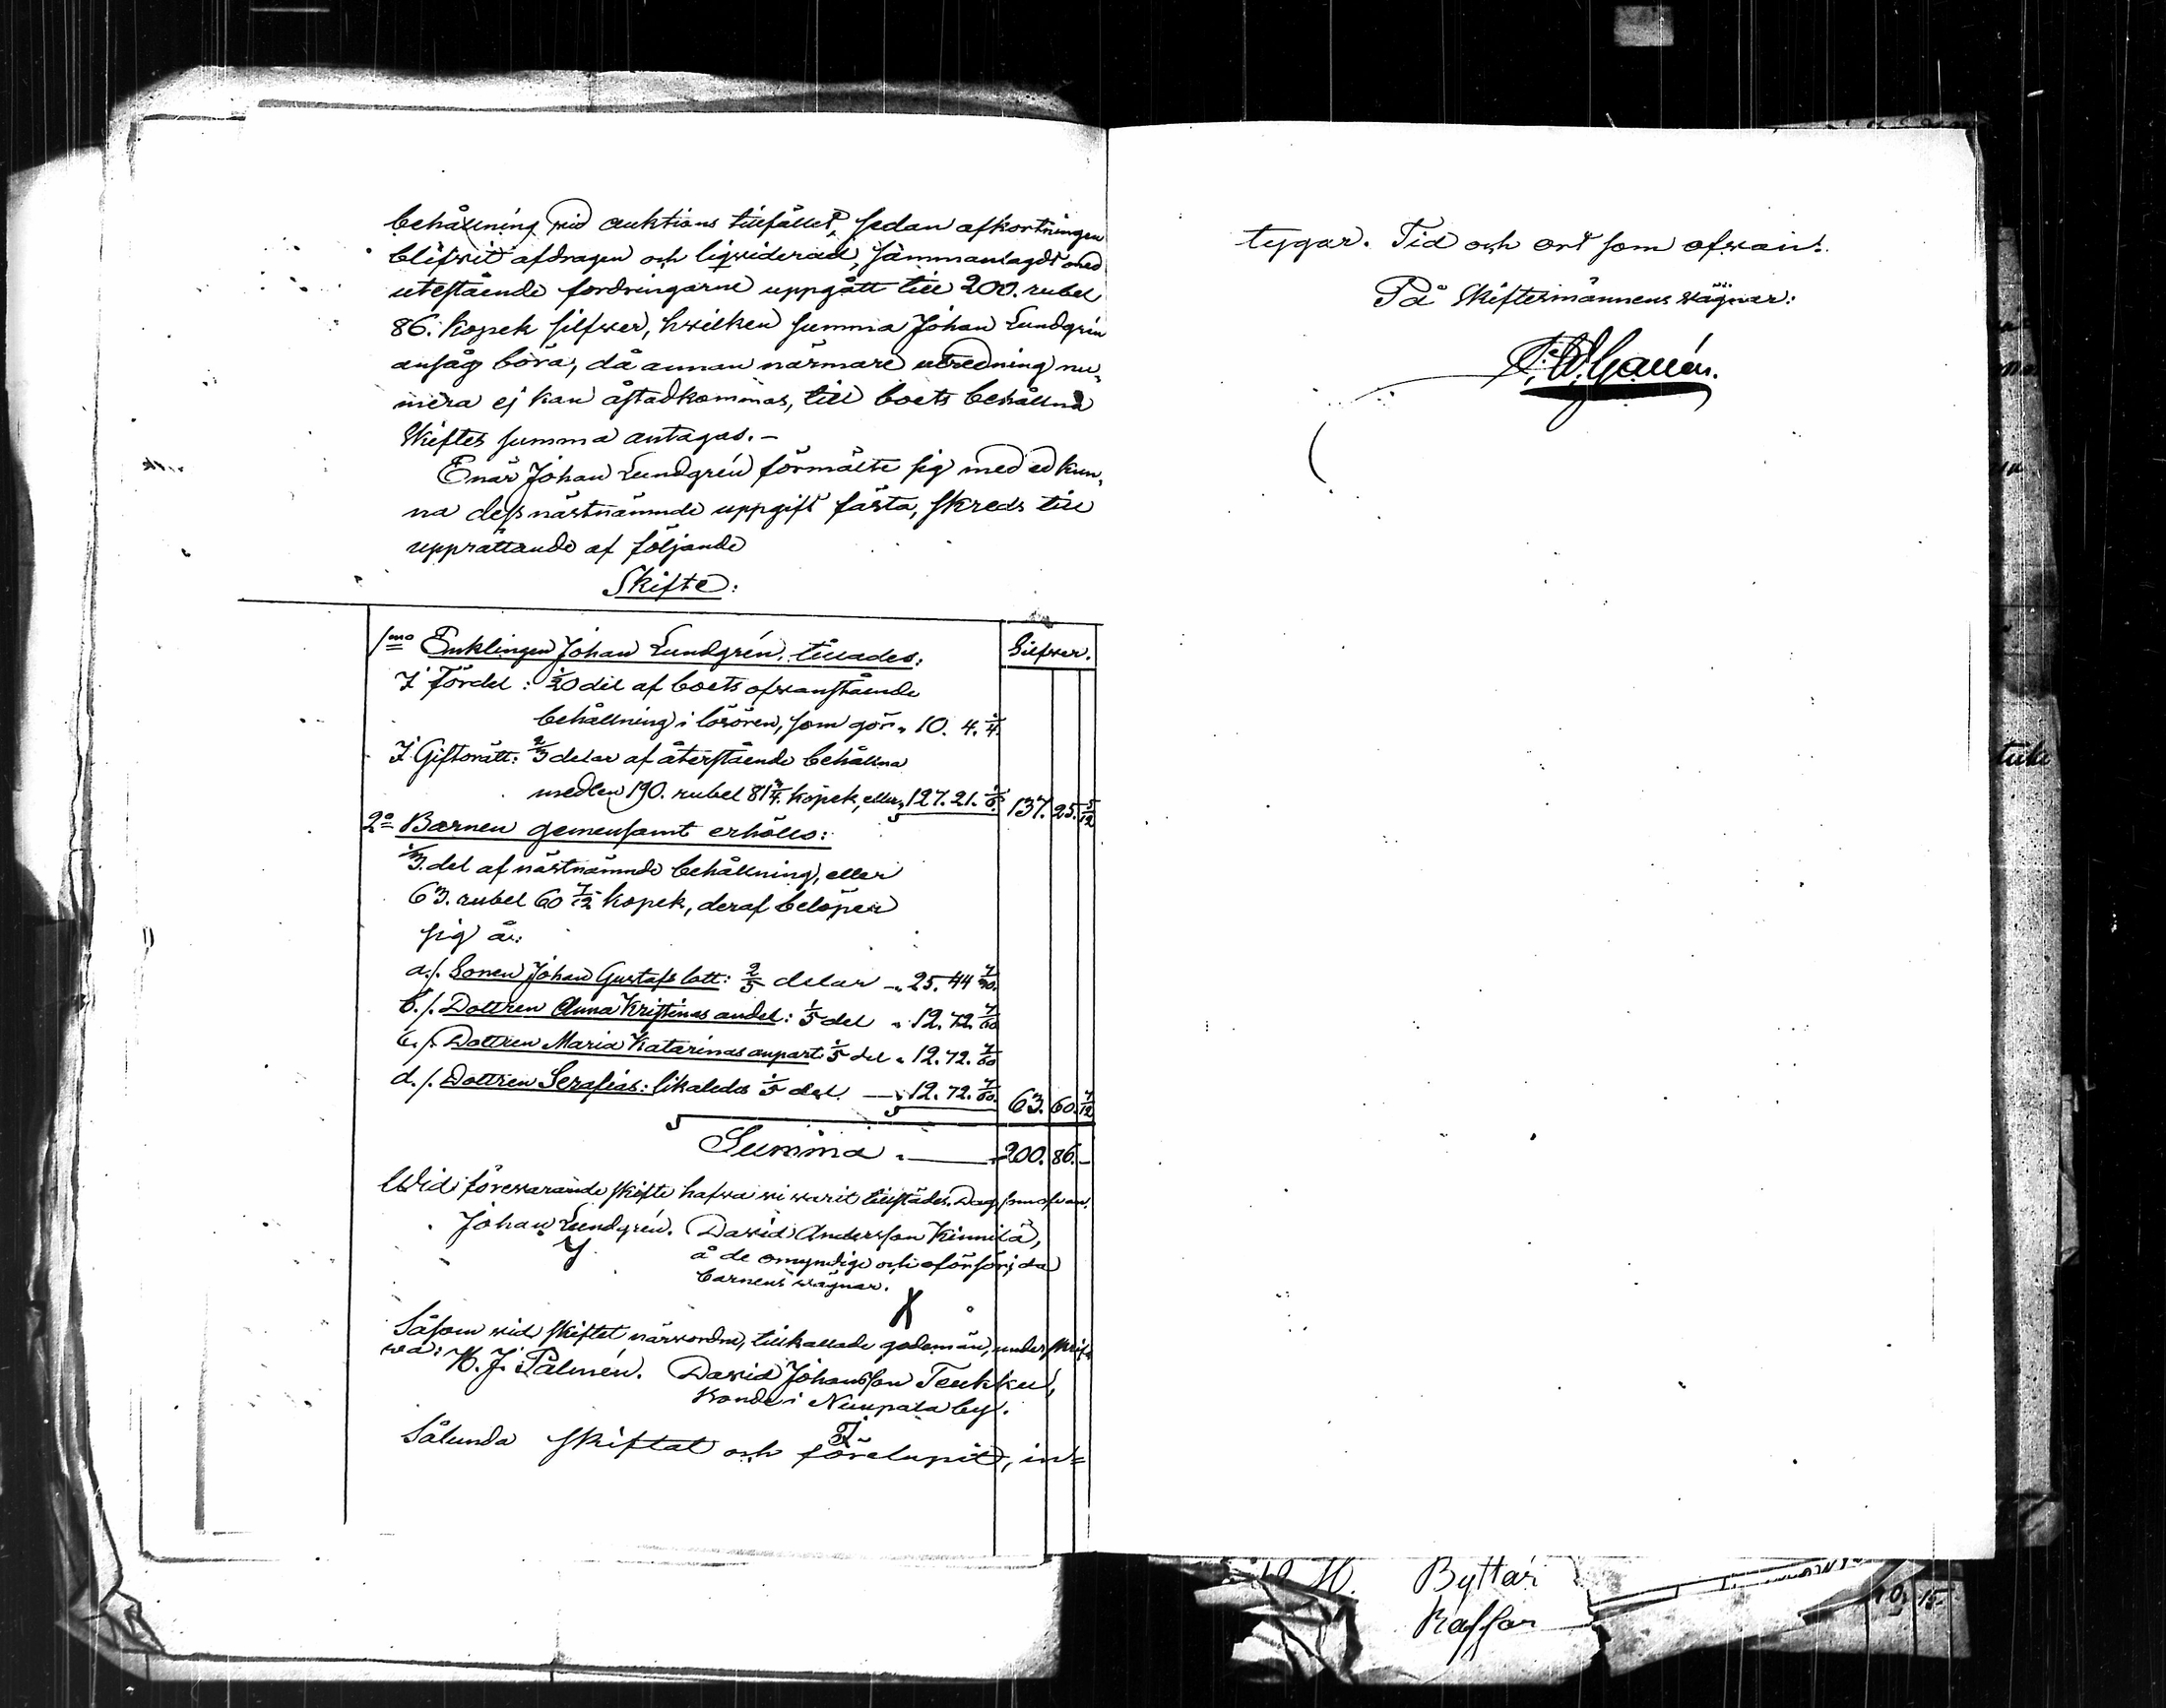 behållning wid auktions tillfället, sedan afkortningen
blifwit afdragen och liqwiderad, sammanlagdt med
utestående fordringarne uppgått till 200. rubel
86. kopek silfwer, hwilken summa Johan Lundgrén
ansåg böra, då annan närmare utredning nu,
mera ej kan åstadkommas, till boets behållna
Skiftes summa antagas. –
Enär Johan Lundgrén förmälte sig med ed kun,
na dess nästnämnde uppgift fästa, skreds till
upprättande af följande
Skifte:
Silfwer.
1mo Enklingen Johan Lundgrén, tillades:
I Fördel: 1/20 del af boets ofwanstående
behållning i lösören, som gör „ 10. 4. 1/4.
I Giftorätt: 2/3 delar af återstående behållna
medlen 190. rubel 81 3/4. kopek, eller „ 127. 21. 1/6. 137. 25. 5/12
2o Barnen gemensamt erhölls:
1/3. del af nästnämnde behållning, eller
63. rubel 60 7/12 kopek, deraf belöper
sig å:
a./. Sonen Johan Gustafs lott: 2/5 delar –„ 25. 44 7/30.
b./. Dottren Anna Kristinas andel: 1/5 del „ 12. 72. 7/60
c./. Dottren Maria Katarinas anpart: 1/5 del „ 12. 72. 7/60
d./. Dottren Serafias: likaledes 1/5 del. — „ 12. 72. 7/60. 63. 60. 7/12
Summa „ — 200. 86. –
Wid förewarande skifte hafwa wi warit tillstädes. Dag som ofwan.
Johan Lundgrén. Dawid Andersson Kinnilä,
å de omyndige och oförsörjda
barnens wägnar.
Såsom wid skiftet närwarande, tillkallade godemän, underskrif,
wa: K. J. Palmén. Dawid Johansson Teukku,
bonde i Nuupala by.
Sålunda skiftat och förelupit, in=
tygar. Tid och ort som ofwan.
På Skiftesmännens wägnar:
Byttar
Kassar
15